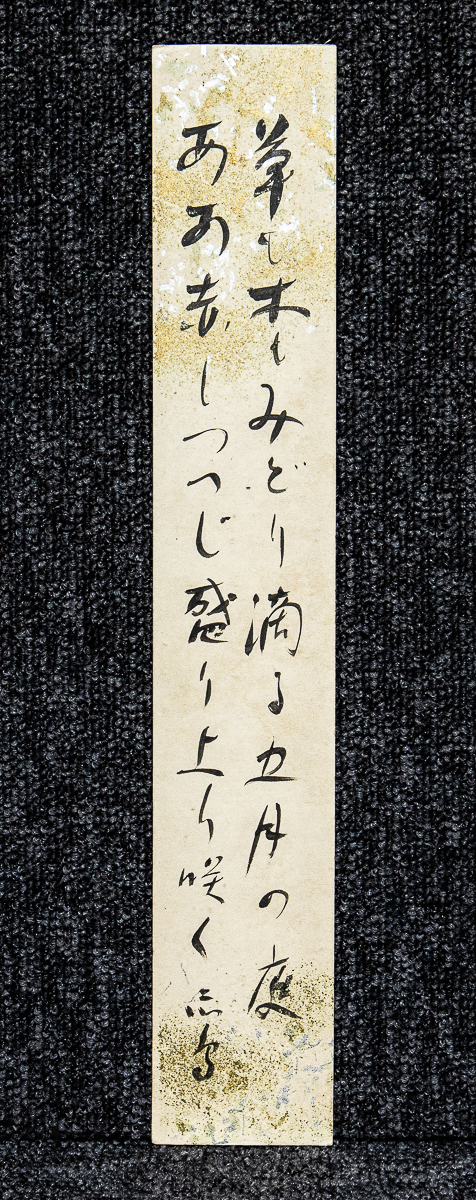 草も木もみどり滴る五月の庭
ああ赤しつつじ盛り上り咲く